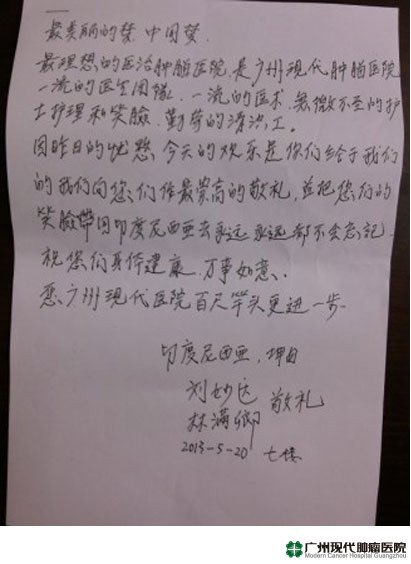 最美丽的梦.中国梦.
最理想的医治肿脑医院.是广州现代肿脑医院
一流的医生团队.一流的医术.无微不至的护
士护理和笑臉.勤劳的清洁工.
因昨日的忧愁.今天的欢乐是你们给于我们
的我们向您们作最崇高的敬礼.並把您们的
笑臉带回印度尼西亚去永远永远都不会忘記.
祝您们身体建康.万事如意.
愿广州现代医院百尺竿头更进一步.
印度尼西亚.
刘妙达
林满卿 敬礼
2013-5-20 七楼
广州现代肿瘤医院
Modern Cancer Hospital Guangzhou